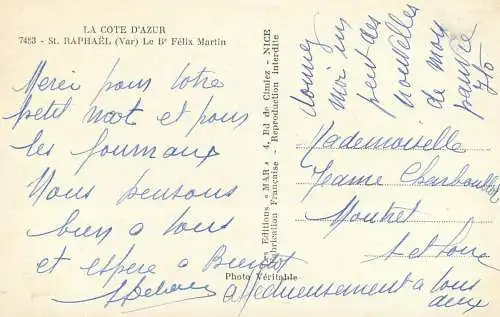 LA COTE D'AZUR
7483 - St. RAPHAËL (Var) Le Bd Félix Martin
Merci pour votre
petit mot et pour
les journaux
Nous pensons
bien a vous
et espere a Bientot
affectueusement a vous
deux
Photo Véritable
Les Editions "MAR" 4, Bd de Cimiez - NICE
Fabrication Française - Reproduction interdite
donnez
moi un
peut des
nouvelles
de mon
pauvre
Mademoiselle
Jeanne Charbouillot
Montret
S et Loire